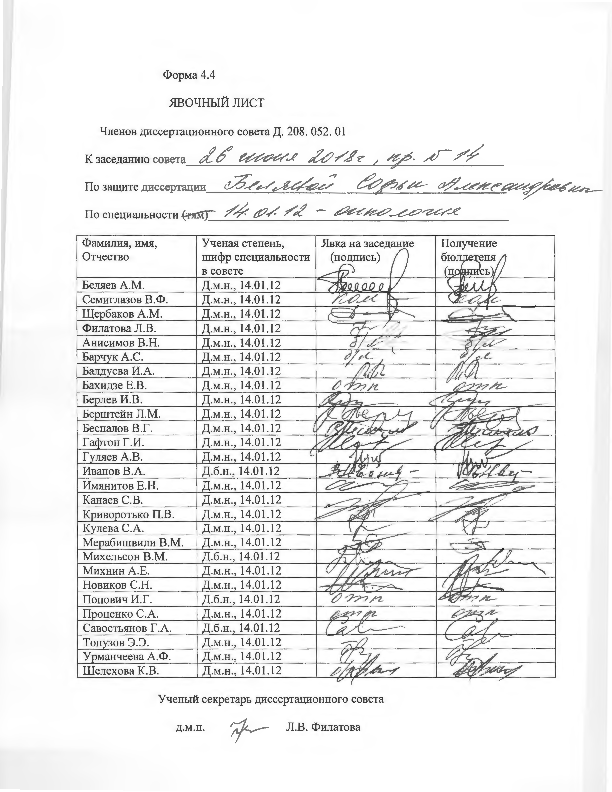 Форма 4.4
ЯВОЧНЫЙ ЛИСТ
Членов диссертационного совета Д. 208. 052. 01
К заседанию совета 26 июня 2018г, пр. № 14
По защите диссертации Беляевой Софьи Александровны
По специальности (тям) 14.01.12 - онкология
Фамилия, имя, Отчество Ученая степень, шифр специальности в совете Явка на заседание (подпись) Получение бюллетеня (подпись)
Беляев А.М. Д.м.н., 14.01.12
Семиглазов В.Ф. Д.м.н., 14.01.12
Щербаков А.М. Д.м.н., 14.01.12
Филатова Л.В. Д.м.н., 14.01.12
Анисимов В.Н. Д.м.н., 14.01.12 б/л б/л
Барчук А.С. Д.м.н., 14.01.12 б/л б/л
Балдуева И.А. Д.м.н., 14.01.12
Бахидзе Е.В. Д.м.н., 14.01.12 отп отп
Берлев И.В. Д.м.н., 14.01.12
Берштейн Л.М. Д.м.н., 14.01.12
Беспалов В.Г. Д.м.н., 14.01.12
Гафтон Г.И. Д.м.н., 14.01.12
Гуляев А.В. Д.м.н., 14.01.12
Иванов В.А. Д.б.н., 14.01.12
Имянитов Е.Н. Д.м.н., 14.01.12
Канаев С.В. Д.м.н., 14.01.12
Криворотько П.В. Д.м.н., 14.01.12
Кулева С.А. Д.м.н., 14.01.12
Мерабишвили В.М. Д.м.н., 14.01.12
Михельсон В.М. Д.б.н., 14.01.12
Михнин А.Е. Д.м.н., 14.01.12
Новиков С.Н. Д.м.н., 14.01.12
Попович И.Г. Д.б.н., 14.01.12 отп отп
Проценко С.А. Д.м.н., 14.01.12 отп отп
Савостьянов Г.А. Д.б.н., 14.01.12
Топузов Э.Э. Д.м.н., 14.01.12
Урманчеева А.Ф. Д.м.н., 14.01.12
Шелехова К.В. Д.м.н., 14.01.12
Ученый секретарь диссертационного совета
д.м.н. Л.В. Филатова